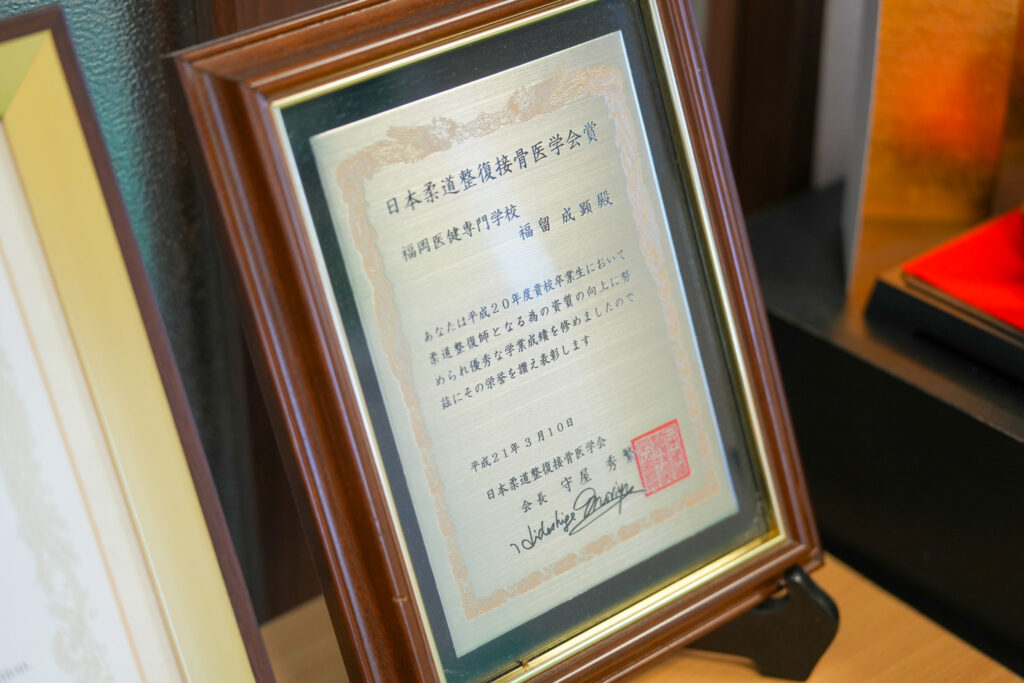 日本柔道整復接骨医学会賞
福岡医健専門学校
福留成顕殿
あなたは平成20年度貴校卒業生において
柔道整復師となる為の資質の向上に努
められ優秀な学業成績を修めましたので
玆にその栄誉を讃え表彰します
平成21年3月10日
日本柔道整復接骨医学会
会長 守屋秀繁
Hideshige Moriya